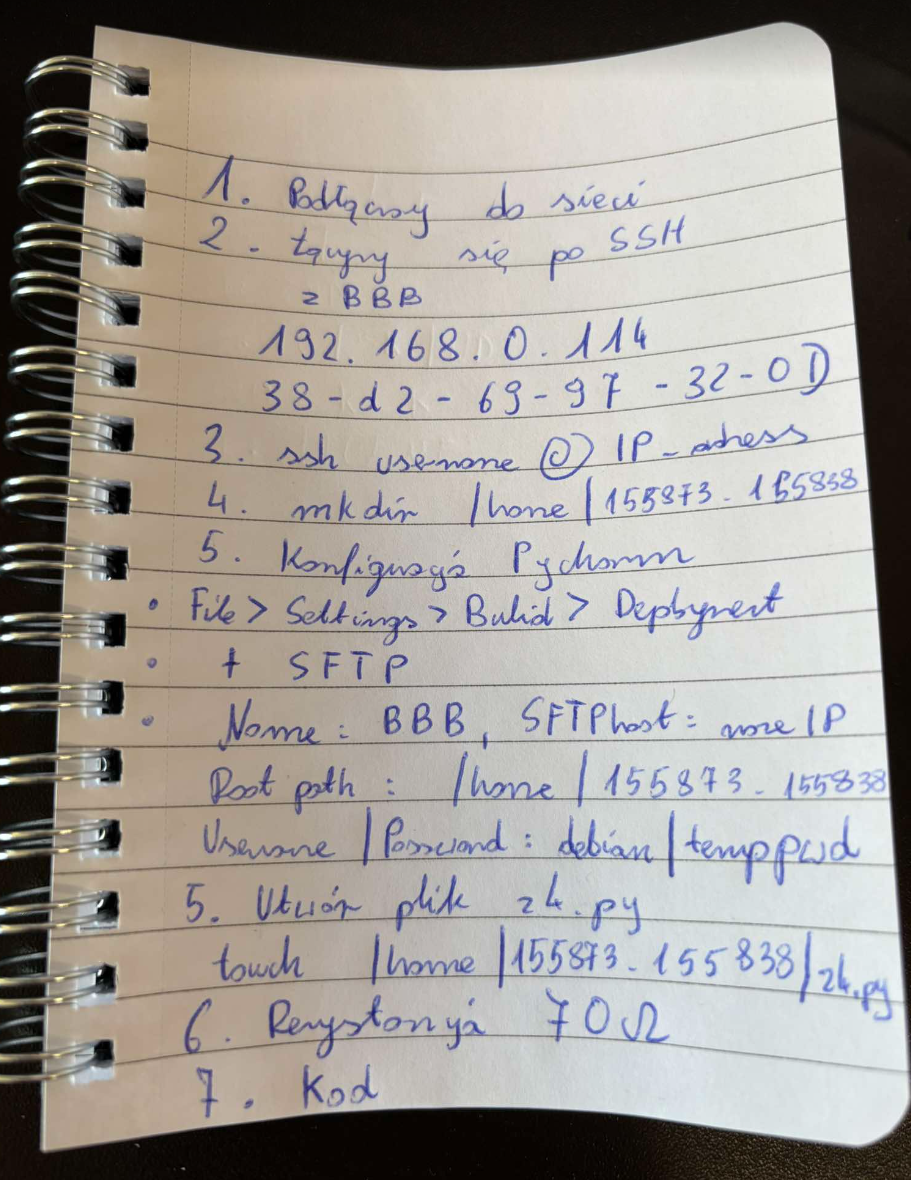 1. Podłączasz do sieci
2. Łączymy się po SSH
z BBB
192.168.0.114
38-d2-69-97-32-0D
3. ssh username @ IP_adress
4. mkdir /home/155873_155838
5. Konfiguracja Pycharm
• File > Settings > Build > Deployment
• + SFTP
• Name: BBB, SFTP host: nasze IP
Root path: /home/155873_155838
Username/Password: debian/temppwd
5. Utwór plik z4.py
touch /home/155873_155838/z4.py
6. Rezystancja 70Ω
7. Kod